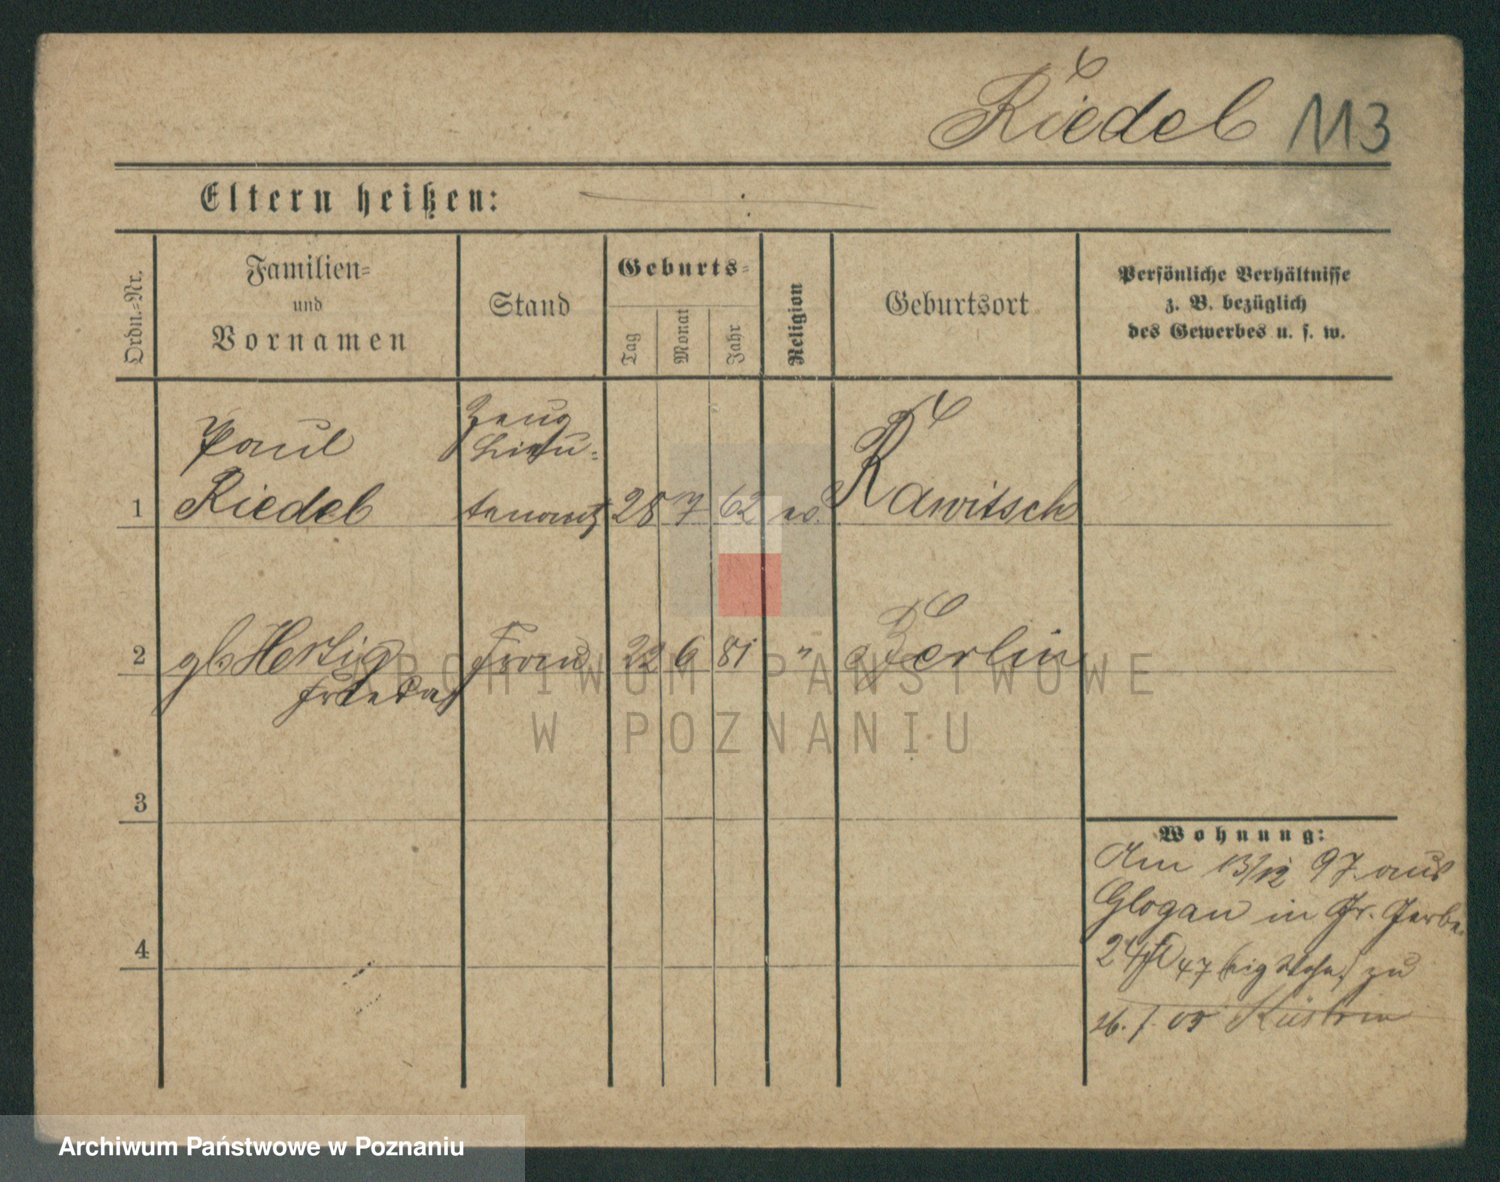 Riedel 113
Eltern heißen:
Ordn.-Nr.
Familien-
und
Vornamen
Stand
Geburts-
Tag
Monat
Jahr
Religion
Geburtsort
Persönliche Verhältnisse
z. B. bezüglich
des Gewerbes u. s. w.
Paul
Zeug
Lieu-
1 Riedel tenant 28 7 62 ev. Rawitsch
2 gb Hertig Frau 22 6 81 " Berlin
Frieda
3
Wohnung:
Am 13/12 97 aus
Glogau in Gr. Gerbe
4
47 zu
05 Küstrin
ARCHIWUM PAŃSTWOWE
W POZNANIU
Archiwum Państwowe w Poznaniu